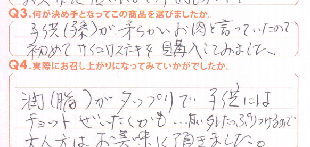 Q3.何が決め手となってこの商品を選びましたか。
子供(孫)が柔らかいお肉と言っていたので
初めてサイコロステーキを購入してみました。
Q4.実際にお召し上がりになってみていかがでしたか。
油(脂)がタップリで子供には
チョットぜいたくかも…
大人方はお美味しく頂きました。